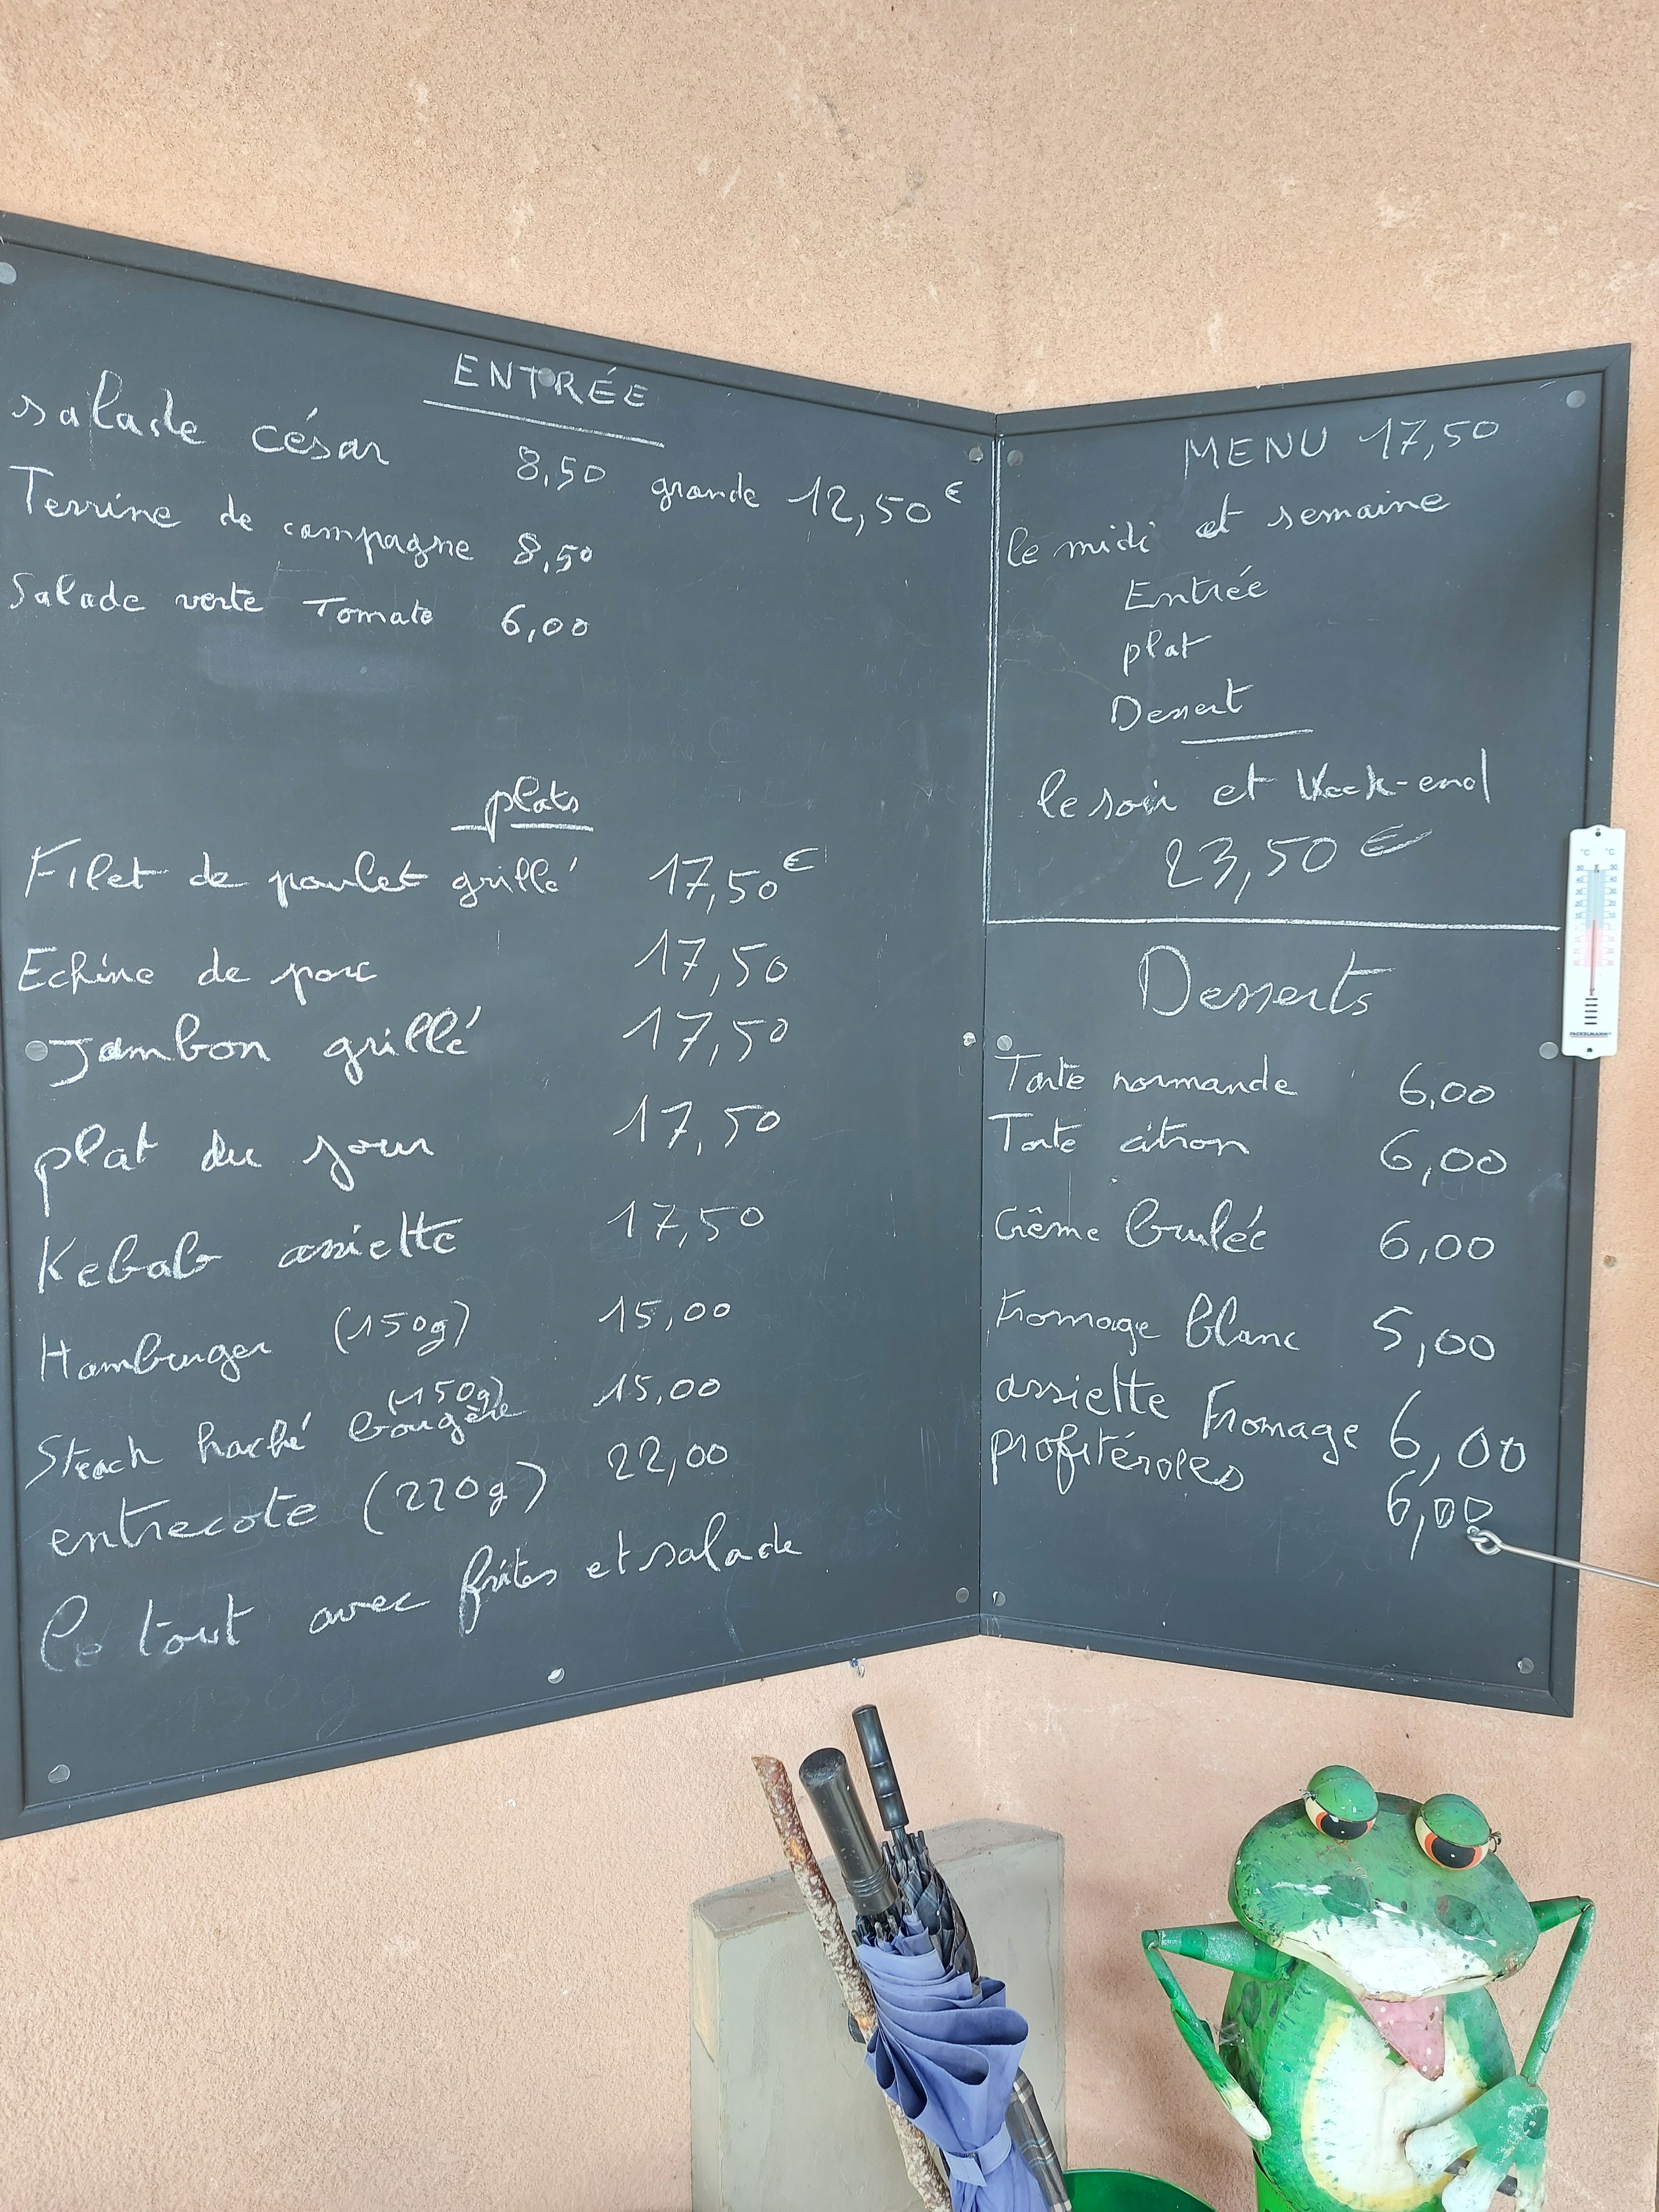 ENTRÉE
salade césar 8,50 grande 12,50€
Terrine de campagne 8,50
Salade verte Tomate 6,00
plats
Filet de poulet grillé 17,50€
Echine de porc 17,50
Jambon grillé 17,50
plat du jour 17,50
Kebab assiette 17,50
Hamburger (150g) 15,00
(150g)
Steach haché 15,00
entrecote (220g) 22,00
le tout avec frites et salade
MENU 17,50
le midi et semaine
Entrée
plat
Dessert
le soir et Week-end
23,50€
Desserts
Tarte normande 6,00
Tarte citron 6,00
Crême brulée 6,00
Fromage blanc 5,00
assiette Fromage 6,00
profitéroles 6,00
°C °C